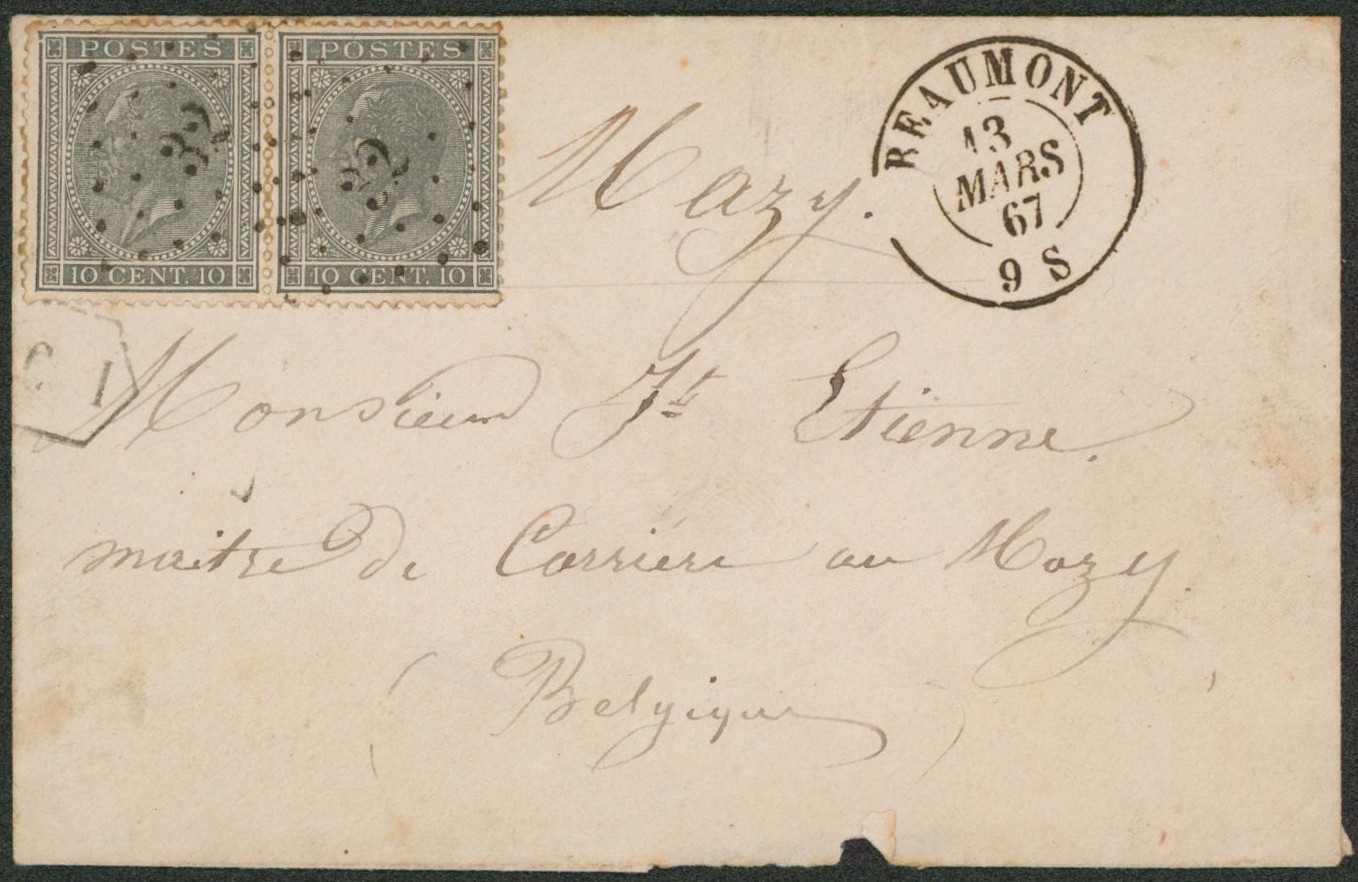 POSTES POSTES
32 32
10 CENT. 10 10 CENT. 10
BEAUMONT
13
MARS
67
9 S
Mazy.
C I
Monsieur Jh Etienne.
maitre de Carriere au Mazy
(Belgique)